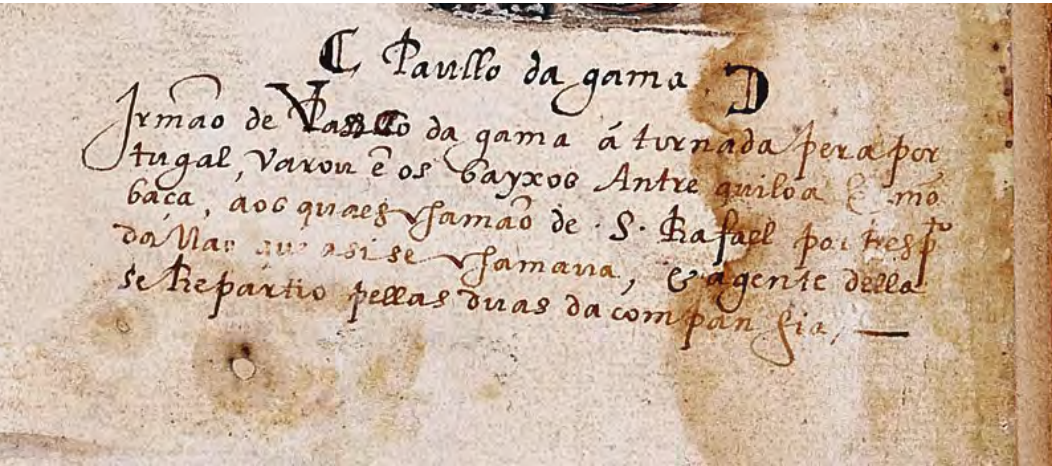 C Paullo da gama. D
Irmão de Vasco da gama á tornada pera por
tugal, varou ẽ os bayxos Antre quiloa E mõ
baça, aos quaes chamão de · S · Rafael por
da Nao que asi se chamaua, & a gente della
se Repartio pellas duas da companhia, —